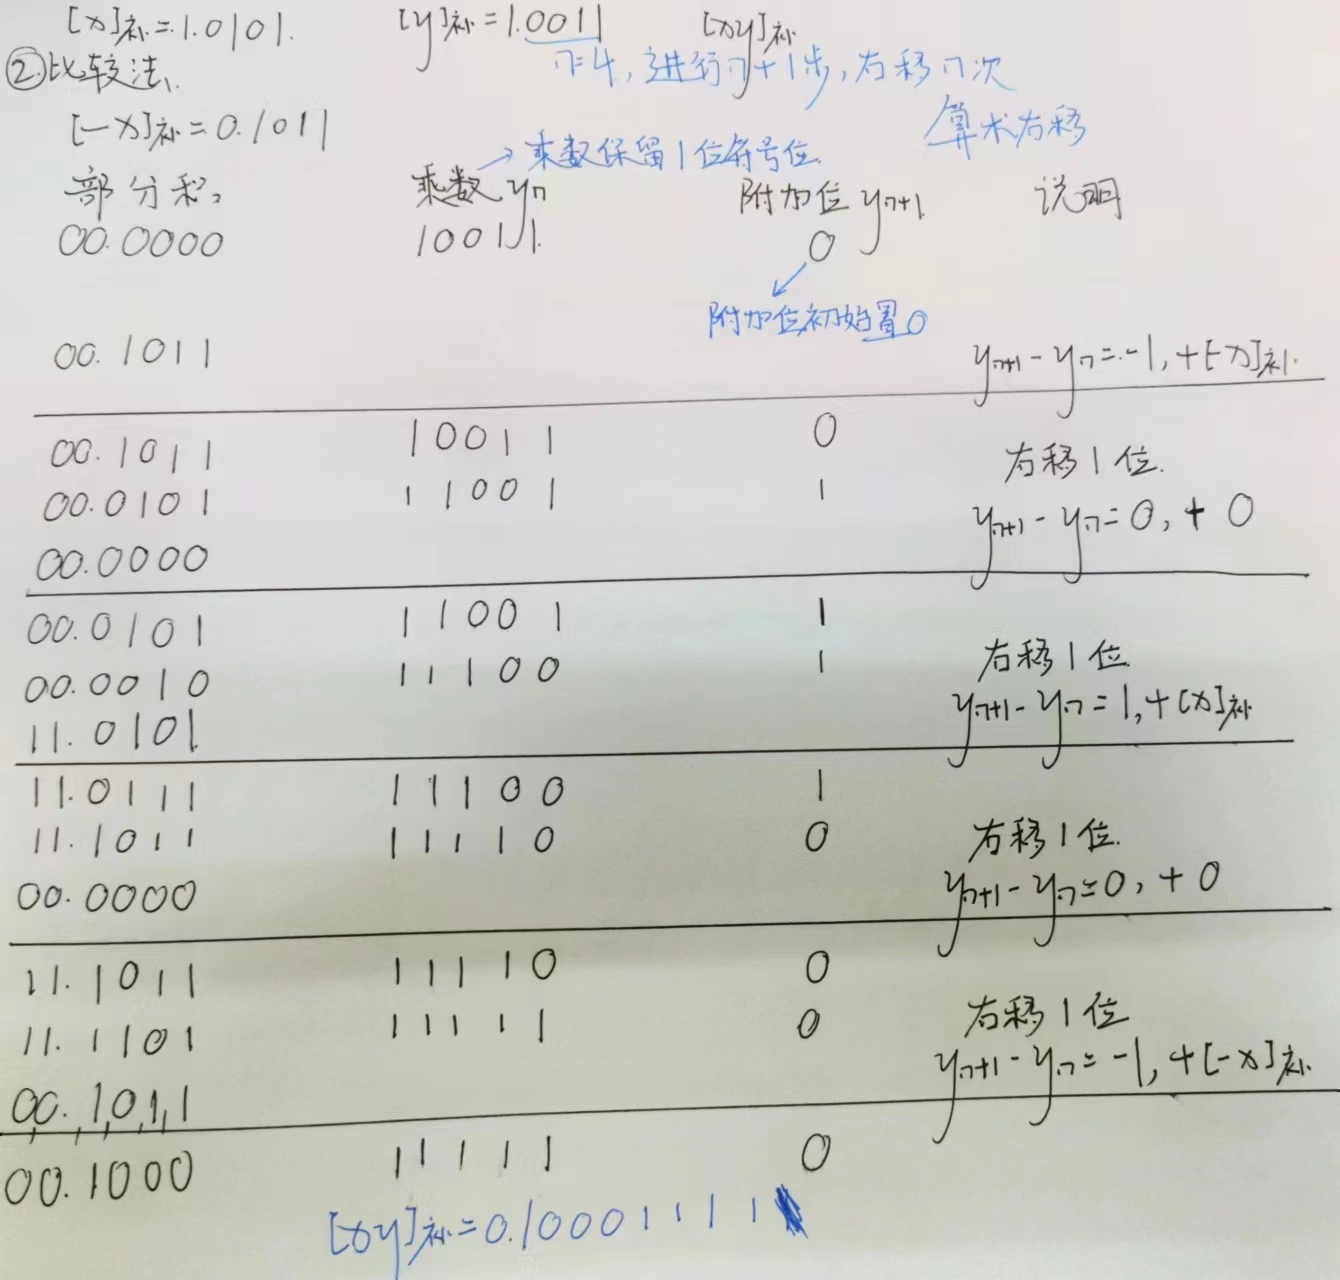 [x]补=1.0101. [y]补=1.0011 [xy]补
②比较法. n=4, 进行n+1步, 右移n次
[-x]补=0.1011 → 乘数保留1位符号位 算术右移
部分积, 乘数 yn 附加位 yn+1 说明
00.0000 10011 0
附加位初始置0
00.1011 yn+1-yn=-1, +[-x]补.
00.1011 10011 0
右移1位.
00.0101 11001 1
00.0000 yn+1-yn=0, +0
00.0101 11001 1
右移1位
00.0010 11100 1
11.0101 yn+1-yn=1, +[x]补
11.0111 11100 1
右移1位.
11.1011 11110 0
00.0000 yn+1-yn=0, +0
11.1011 11110 0
右移1位
11.1101 11111 0
00.1011 yn+1-yn=-1, +[-x]补.
00.1000 11111 0
[xy]补=0.10001111